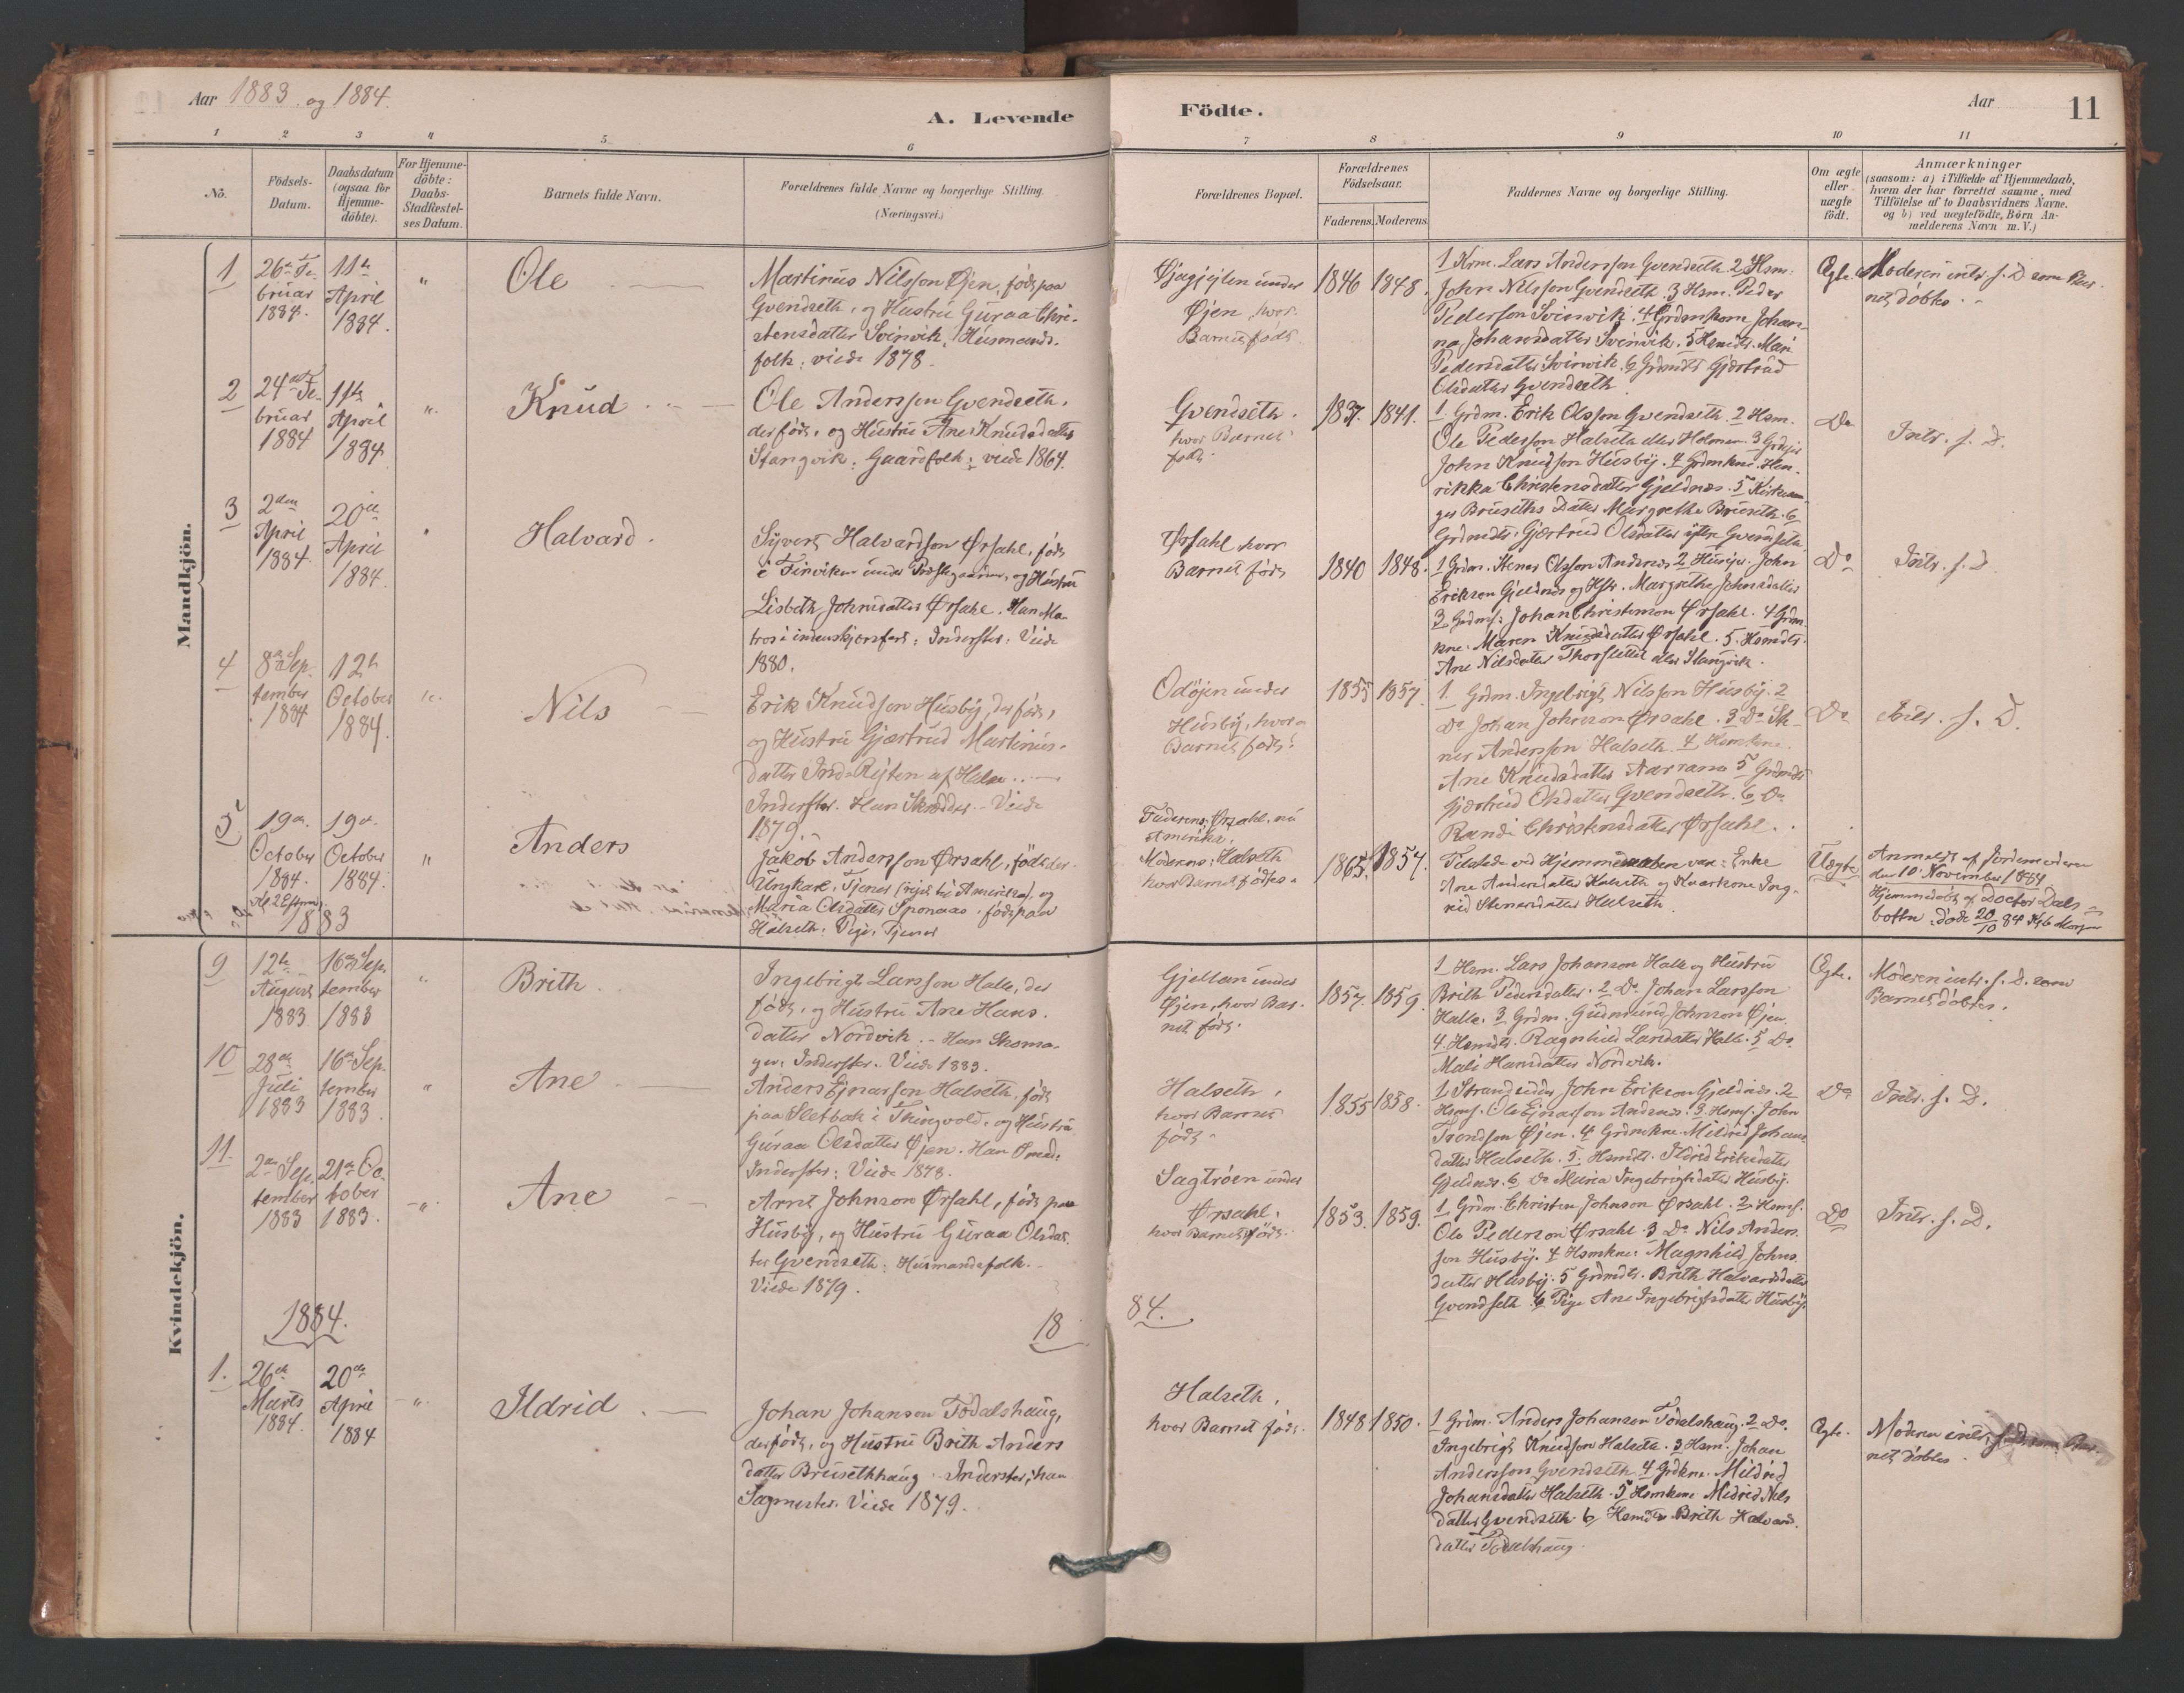 Aar 1883 og 1884.
A. Levende Födte.
Aar
11
1 2 3 4 5 6 7 8 9 10 11
No.
Födsels-
Datum.
Daabsdatum
(ogsaa for
Hjemme-
döbte).
For Hjemme-
döbte:
Daabs-
Stadfæstel-
ses Datum.
Barnets fulde Navn.
Forældrenes fulde Navne og borgerlige Stilling.
(Næringsvei.)
Forældrenes Bopæl.
Forældrenes
Födselsaar.
Faderens. Moderens.
Faddernes Navne og borgerlige Stilling.
Om ægte
eller
uægte
födt.
Anmærkninger
(saasom: a) i Tilfælde af Hjemmedaab,
hvem der har forrettet samme, med
Tilföielse af to Daabsvidners Navne.
og b) ved uægtefödte, Börn An-
melderens Navn m.V.)
Mandkjön.
1
26de Fe-
bruar
1884.
11te
April
1884.
"
Ole
Martinus Nilsson Øjen, født paa
Gvendseth, og Hustru Guraa Chri-
stensdatter Svinvik. Husmands-
folk: viede 1878.
under
Øjen, hvor
Barnet født
1846 1848.
1 Hsm. Lars Andersson Gvendseth 2 Hsm.
John Nilsson Gvendseth. 3 Hsm. Peder
Pedersson Svinvik. 4 Grdmkom Johan-
na Johansdatter Svinvik. 5 Hsmdtr. Mari
Pedersdatter Svinvik. 6 Grdmdtr Gjærtrud
Olsdatter Gvendseth
Ægte.
Moderen intr. s. D som Bar-
net døbtes.
2
24de Fe-
bruar
1884
11te
April
1884
"
Knud
Ole Andersson Gvendseth,
der født, og Hustru Ane Knudsdatter
Stangvik: Gaardfolk: viede 1864.
Gvendseth.
hvor Barnet
født.
1837. 1841.
1. Grdm. Erik Olsson Gvendseth. 2 Hsm.
Ole Pedersson Halseth eller Holmen. 3
John Knudsson Husby. 4 Grdmkone Hen-
rikka Christensdatter Gjeldnæs. 5 Kirkesan-
ger Bruseths Datter Margrethe Bruseth. 6
Grdmdtr. Gjærtrud Olsdatter Gvendseth
Do
Intr. s. D.
3
2den
April
1884.
20de
April
1884.
"
Halvard.
Syvert Halvardson Ørsahl, født
i under Præstegaarden, og Hustru
Lisbeth Johnsdatter Ørsahl. Han Ma-
tros i indenskjærsfart: Inderster. Viede
1880.
Ørsahl hvor
Barnet født
1840 1848.
1 Grdm. Olsson Andsnes 2 John
Erikson Gjeldnæs og Margrethe Johnsdatter
3 Johan Christenson Ørsahl. 4 Grdm-
kne. Maren Knudsdatter Ørsahl. 5. Hsmdtr.
Ane Nilsdatter eller Stangvik.
Do
Intr. s. D
4
8de Sep-
tember
1884
12te
October
1884.
"
Nils
Erik Knudsson Husby, der født,
og Hustru Gjærtrud Martinus-
datter af Halse.
Inderster. Han Skrædder. Viede
1879.
Odøjen under
Husby, hvor
Barnet født.
1855 1857.
1 Grdm. Ingebrigt Nilsson Husby. 2
Do Johan Johnson Ørsahl. 3 Do
Andersson Halseth 4 Hsmkone
Ane Knudsdatter 5 Grdmdtr
Gjærtrud Olsdatter Gvendseth. 6 Do
Randi Christensdatter Ørsahl.
Do
Intr. s. D.
5
19de
October
1884.
Kl. 2 Efterm.
19de
October
1884.
"
Anders
Jakob Andersson Ørsahl, født der.
Ungkarl, Tjener (rejst til Amerika), og
Maria Olsdatter, født paa
Halseth: Pige, Tjener
Faderens: Ørsahl, nu
Amerika.
Moderens: Halseth
hvor Barnet fødtes.
1865. 1857.
Tilstede ved Hjemmedaaben var: Enke
Ane Andersdatter Halseth og Kvarkone Ing-
rid Stenersdatter Halseth
Uægte
Anmeldt af Jordemoderen
den 10 November 1884
Hjemmedøbt af Doctor Dals-
død 20/10 84 Kl. 6 Morgen
1883
Kvindekjön.
9
12te
August
1883
16de Sep-
tember
1883
"
Brith
Ingebrigt Larsson Halle, der
født, og Hustru Ane Hans-
datter Nordvik. Han Skoma-
ger: Inderster. Viede 1883.
under
Øjen, hvor Bar-
net født.
1857. 1859.
1 Hsm. Lars Johanson Halle og Hustru
Brith Pedersdatter. 2 Do Johan Larsson
Halle. 3 Grdm. Gudmund Johnson Øjen
4 Hsmdtr. Ragnhild Larsdatter Halle. 5 Do
Mali Hansdatter Nordvik.
Ægte.
Moderen intr. s. D. som
Barnet døbtes.
10
28de
Juli
1883
16de Sep-
tember
1883.
"
Ane
Anders Ejnarsson Halseth, født
paa Sletbak i Thingvold, og Hustru
Guraa Olsdatter Øjen. Han Smed:
Inderster: Viede 1878.
Halseth,
hvor Barnet
født.
1855 1858.
1 Strandsidder John Erikson Gjeldnæs. 2
Hsmf. Ole Ejnarsson Andsnes. 3 Hsmf. John
Trondson Øjen. 4 Grdmkne Mildrid Johans-
datter Halseth. 5. Hsmdtr. Ildrid Eriksdatter
Gjeldnæs. 6 Do Maria Ingebrigtsdatter Husby.
Do
Intr. s. D.
11.
2den Sep-
tember
1883
21de Oc-
tober
1883.
"
Ane
Arnt Johnson Ørsahl, født paa
Husby, og Hustru Guraa Olsdat-
ter Gvendseth: Husmandsfolk.
Viede 1879.
Sagtrøen under
Ørsahl,
hvor Barnet født.
1853. 1859.
1 Grdm. Christen Johnson Ørsahl. 2 Hsmf.
Ole Pederson Ørsahl 3 Do Nils Anders-
son Husby. 4 Hsmkne: Magnhild Johns-
datter Husby. 5 Grdmdtr. Brith Halvardsdatter
Gvendseth 6 Pige Ane Ingebrigtsdatter Husby.
Do
Intr. s. D.
1884.
18
84.
1.
26de
Marts
1884.
20de
April
1884
"
Ildrid
Johan Johanson Todalshaug,
der født, og Hustru Brith Anders-
datter Brusethhaug. Inderster, han
Sagmester. Viede 1879.
Halseth,
hvor Barnet født.
1848 1850.
1 Grdm. Anders Johansen Todalshaug. 2 Do.
Ingebrigt Knudson Halseth. 3 Hsm. Johan
Andersson Gvendseth 4 Grdkne. Mildrid
Johansdatter Halseth. 5 Hsmkone Mildrid Nils-
datter Gvendseth. 6 Hsmdtr Brith Halvards-
datter Todalshaug.
Ægte.
Moderen intr. s. D som Bar-
net døbtes.